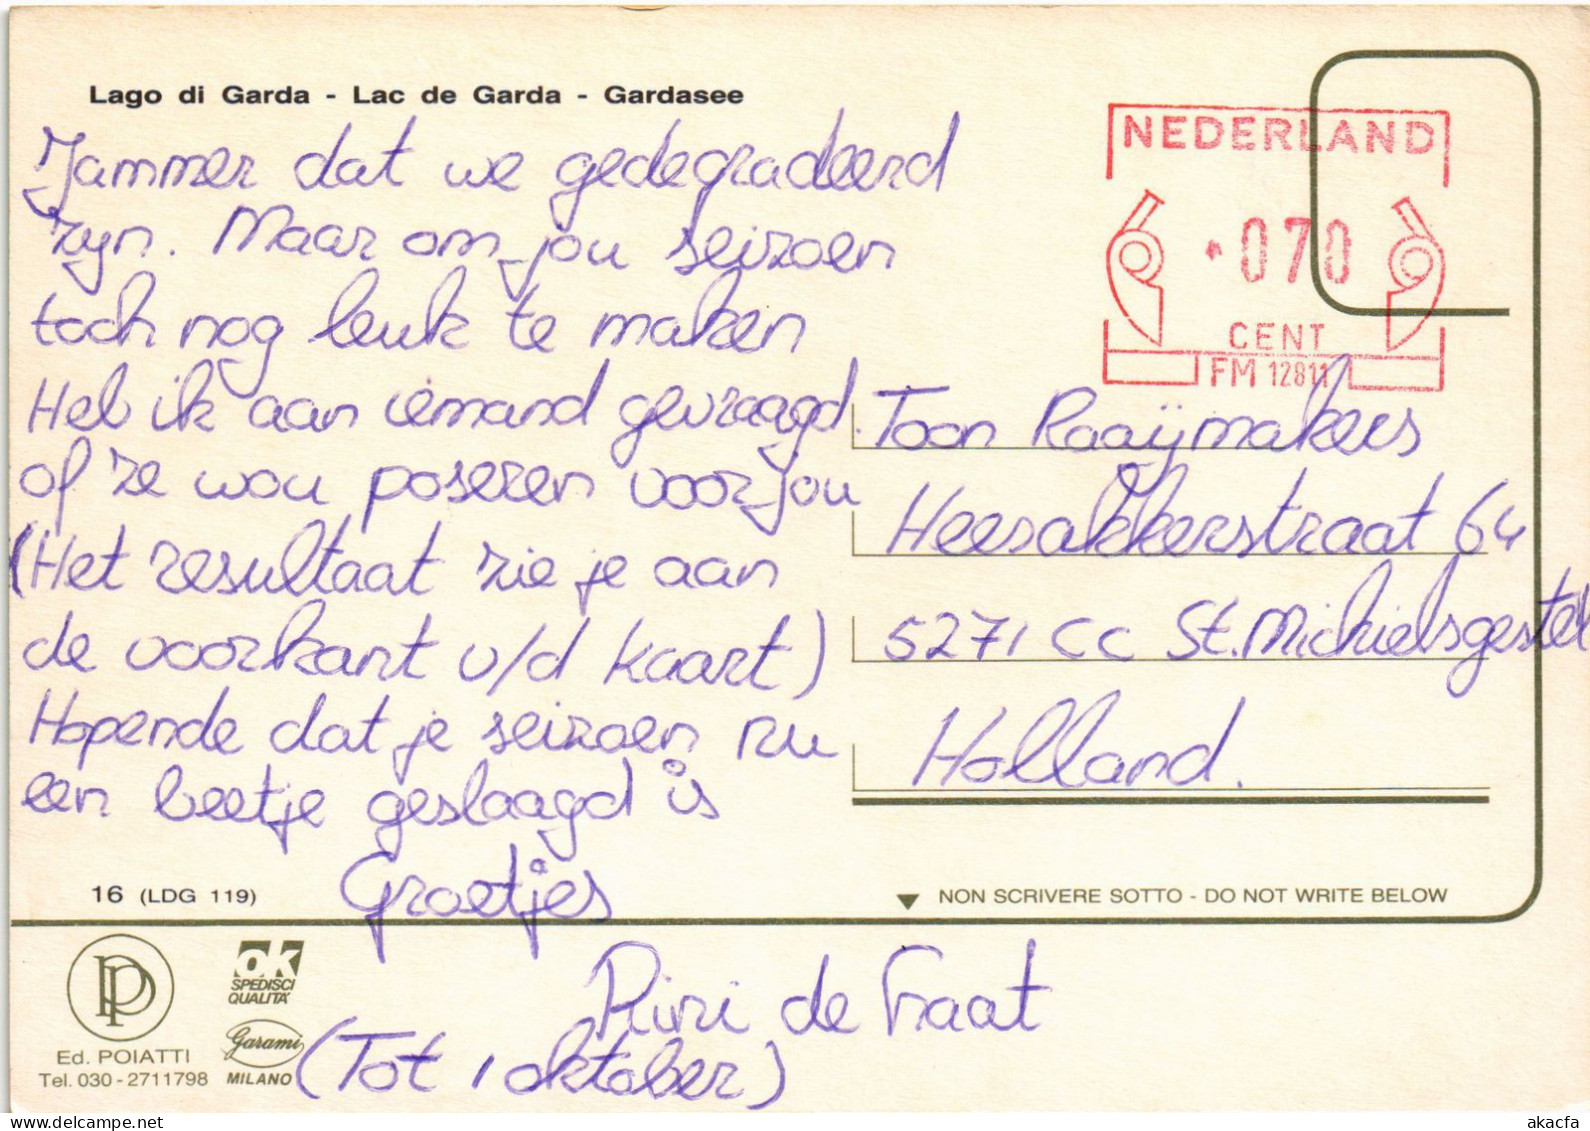 Lago di Garda - Lac de Garda - Gardasee
Jammer dat we gedegradeerd
zijn. Maar om jou seizoen
toch nog leuk te maken
Heb ik aan iemand gevraagd.
of ze wou poseren voor jou
(Het resultaat zie je aan
de voorkant v/d kaart)
Hopende dat je seizoen nu
een beetje geslaagd is
Groetjes
Rini de Graat
(Tot 1 oktober)
NEDERLAND
*070
CENT
FM 12811
Toon Raaijmakers
Heesakkerstraat 64
5271 CC St. Michielsgestel
Holland.
16 (LDG 119)
NON SCRIVERE SOTTO - DO NOT WRITE BELOW
PP
Ed. POIATTI
Tel. 030-2711798
ok
SPEDISCI
QUALITA'
Garami
MILANO
www.delcampe.net
akacfa